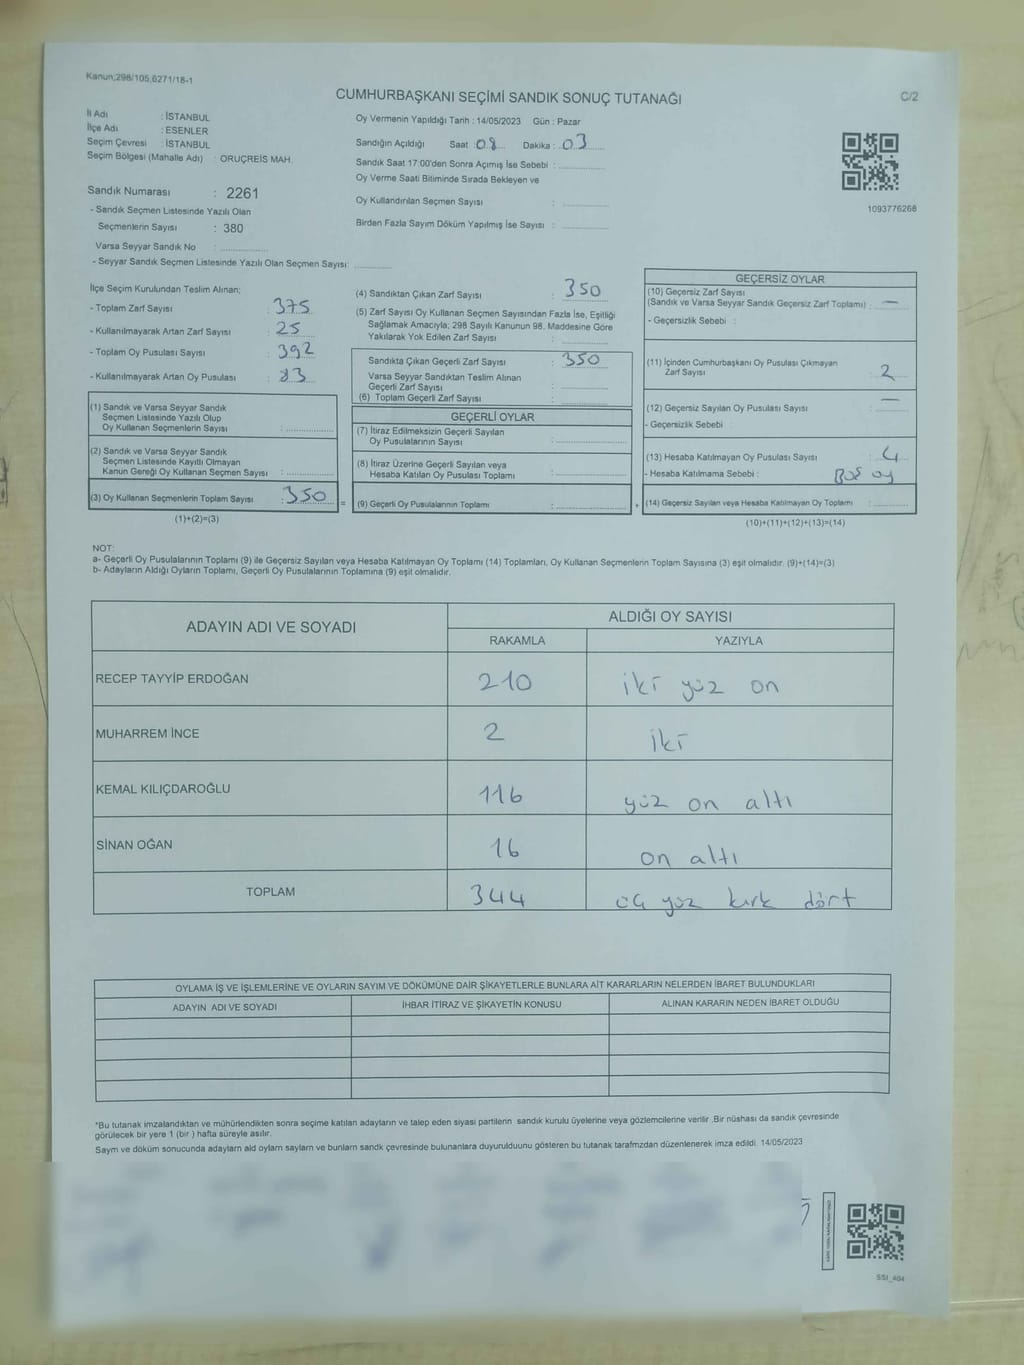 Kanun;298/105,6271/18-1
CUMHURBAŞKANI SEÇİMİ SANDIK SONUÇ TUTANAĞI
C/2
İl Adı : İSTANBUL
İlçe Adı : ESENLER
Seçim Çevresi : İSTANBUL
Seçim Bölgesi (Mahalle Adı) : ORUÇREİS MAH.
Sandık Numarası : 2261
- Sandık Seçmen Listesinde Yazılı Olan
Seçmenlerin Sayısı : 380
Varsa Seyyar Sandık No :
- Seyyar Sandık Seçmen Listesinde Yazılı Olan Seçmen Sayısı:
Oy Vermenin Yapıldığı Tarih : 14/05/2023 Gün : Pazar
Sandığın Açıldığı Saat : 08 Dakika : 03
Sandık Saat 17:00'den Sonra Açımış İse Sebebi :
Oy Verme Saati Bitiminde Sırada Bekleyen ve
Oy Kullandırılan Seçmen Sayısı :
Birden Fazla Sayım Döküm Yapılmış İse Sayısı :
1093776268
İlçe Seçim Kurulundan Teslim Alınan;
- Toplam Zarf Sayısı : 375
- Kullanılmayarak Artan Zarf Sayısı : 25
- Toplam Oy Pusulası Sayısı : 392
- Kullanılmayarak Artan Oy Pusulası :
(1) Sandık ve Varsa Seyyar Sandık
Seçmen Listesinde Yazılı Olup
Oy Kullanan Seçmenlerin Sayısı :
(2) Sandık ve Varsa Seyyar Sandık
Seçmen Listesinde Kayıtlı Olmayan
Kanun Gereği Oy Kullanan Seçmen Sayısı :
(3) Oy Kullanan Seçmenlerin Toplam Sayısı : 350 =
(1)+(2)=(3)
(4) Sandıktan Çıkan Zarf Sayısı : 350
(5) Zarf Sayısı Oy Kullanan Seçmen Sayısından Fazla İse, Eşitliği
Sağlamak Amacıyla; 298 Sayılı Kanunun 98. Maddesine Göre
Yakılarak Yok Edilen Zarf Sayısı :
Sandıkta Çıkan Geçerli Zarf Sayısı : 350
Varsa Seyyar Sandıktan Teslim Alınan
Geçerli Zarf Sayısı :
(6) Toplam Geçerli Zarf Sayısı :
GEÇERLİ OYLAR
(7) İtiraz Edilmeksizin Geçerli Sayılan
Oy Pusulalarının Sayısı :
(8) İtiraz Üzerine Geçerli Sayılan veya
Hesaba Katılan Oy Pusulası Toplamı :
(9) Geçerli Oy Pusulalarının Toplamı : +
GEÇERSİZ OYLAR
(10) Geçersiz Zarf Sayısı
(Sandık ve Varsa Seyyar Sandık Geçersiz Zarf Toplamı) : —
- Geçersizlik Sebebi :
(11) İçinden Cumhurbaşkanı Oy Pusulası Çıkmayan
Zarf Sayısı : 2
(12) Geçersiz Sayılan Oy Pusulası Sayısı : —
- Geçersizlik Sebebi :
(13) Hesaba Katılmayan Oy Pusulası Sayısı : 4
- Hesaba Katılmama Sebebi : Boş oy
(14) Geçersiz Sayılan veya Hesaba Katılmayan Oy Toplamı :
(10)+(11)+(12)+(13)=(14)
NOT:
a- Geçerli Oy Pusulalarının Toplamı (9) ile Geçersiz Sayılan veya Hesaba Katılmayan Oy Toplamı (14) Toplamları, Oy Kullanan Seçmenlerin Toplam Sayısına (3) eşit olmalıdır. (9)+(14)=(3)
b- Adayların Aldığı Oyların Toplamı, Geçerli Oy Pusulalarının Toplamına (9) eşit olmalıdır.
ADAYIN ADI VE SOYADI
ALDIĞI OY SAYISI
RAKAMLA YAZIYLA
RECEP TAYYİP ERDOĞAN 210 iki yüz on
MUHARREM İNCE 2 iki
KEMAL KILIÇDAROĞLU 116 yüz on altı
SİNAN OĞAN 16 on altı
TOPLAM 344 üç yüz kırk dört
OYLAMA İŞ VE İŞLEMLERİNE VE OYLARIN SAYIM VE DÖKÜMÜNE DAİR ŞİKAYETLERLE BUNLARA AİT KARARLARIN NELERDEN İBARET BULUNDUKLARI
ADAYIN ADI VE SOYADI İHBAR İTİRAZ VE ŞİKAYETİN KONUSU ALINAN KARARIN NEDEN İBARET OLDUĞU
*Bu tutanak imzalandıktan ve mühürlendikten sonra seçime katılan adayların ve talep eden siyasi partilerin sandık kurulu üyelerine veya gözlemcilerine verilir. Bir nüshası da sandık çevresinde
görülecek bir yere 1 (bir ) hafta süreyle asılır.
Sayım ve döküm sonucunda adayların ald oyların sayların ve bunların sandk çevresinde bulunanlara duyurulduunu gösteren bu tutanak tarafmzdan düzenlenerek imza edildi. 14/05/2023
SSI_404